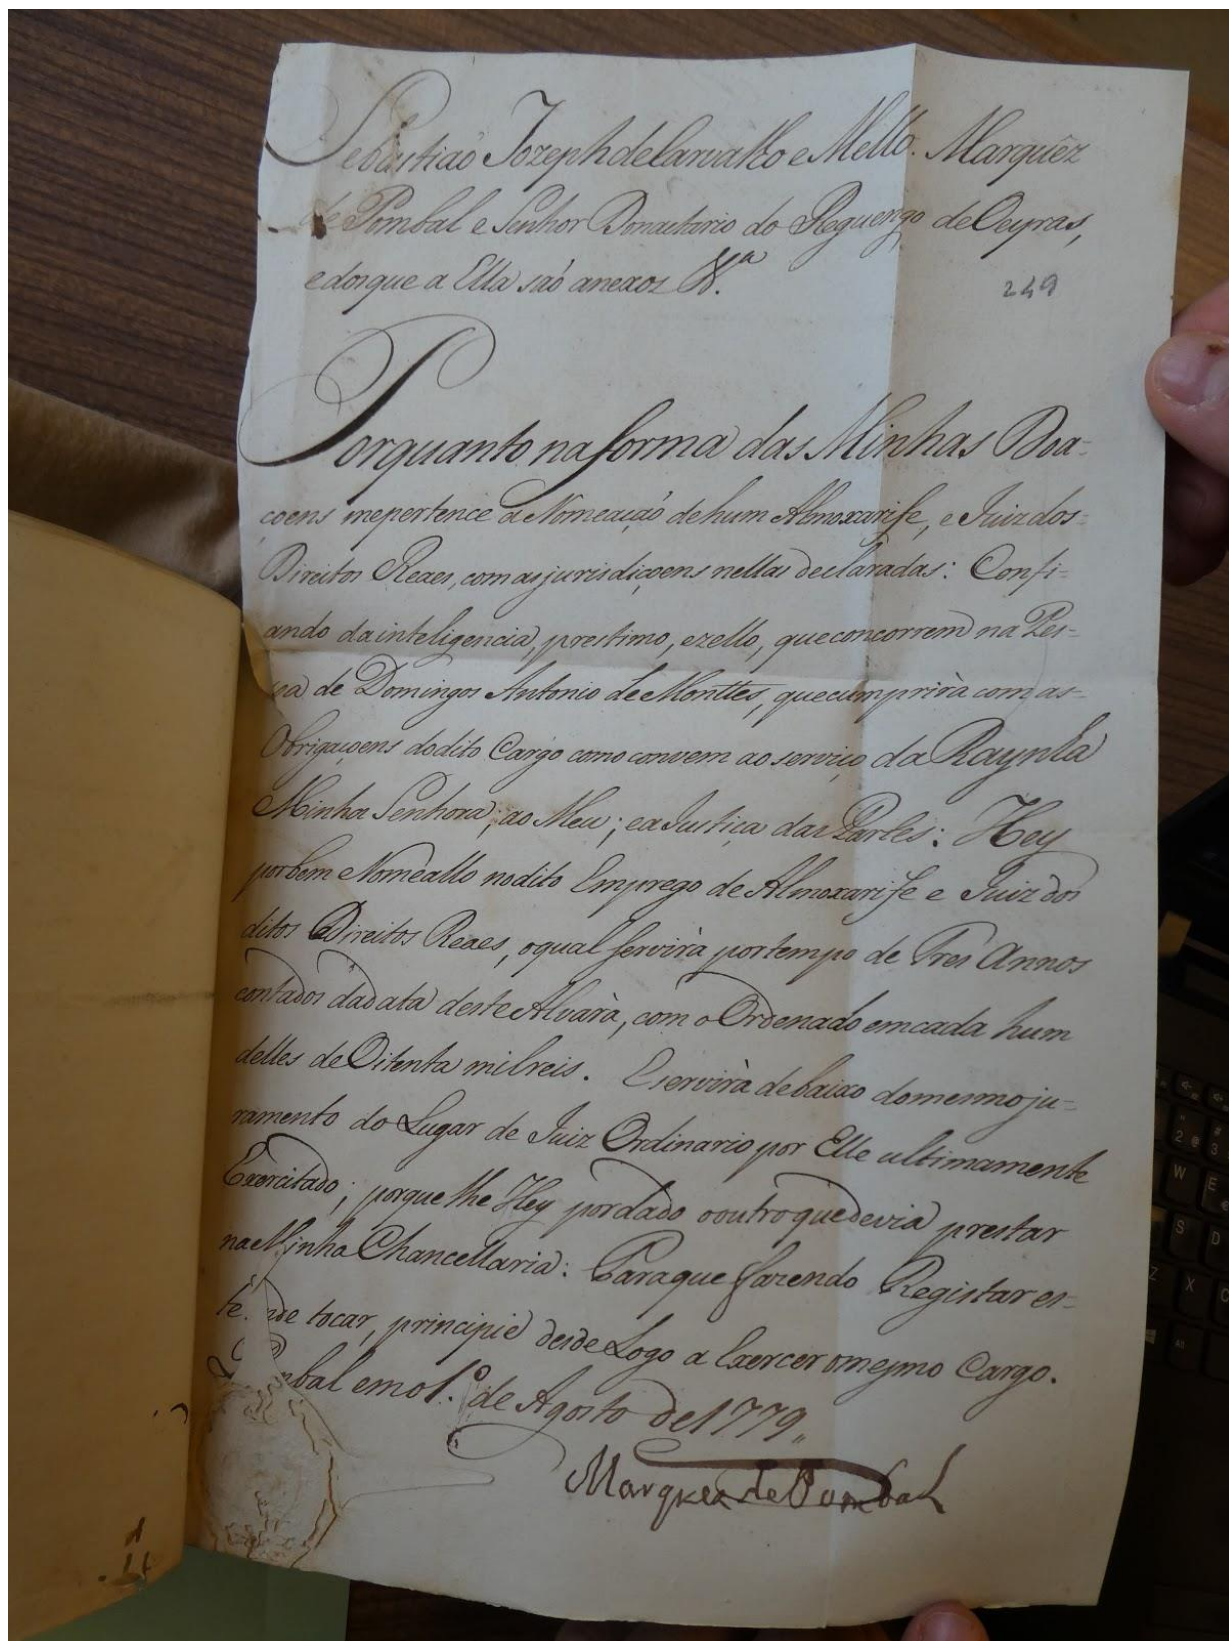 Sebastiaõ Jozeph de Carvalho e Mello. Marquêz
de Pombal e Senhor Donactario do Reguengo de Oeyras,
e dos que a Ella saõ anexos &.ª
249
Porquanto na forma das Minhas Doa=
çoens me pertence a Nomeaçaõ de hum Almoxarife, e Juiz dos=
Direitos Reaes, com as jurisdiçoens nellas declaradas: Confi=
ando da inteligencia, prestimo, e zello, que concorrem na Pes=
soa de Domingos Antonio de Monttes, que cumprirà com as=
Obrigaçoens do dito Cargo como convem ao serviço da Raynha
Minha Senhora; ao Meu; e a Justiça das Partes: Hey
por bem Nomeallo no dito Emprego de Almoxarife e Juiz dos
ditos Direitos Reaes, o qual servirà por tempo de Três Annos
contados da data deste Alvarà, com o Ordenado em cada hum
delles de Oitenta mil reis. E servirà debaixo do mesmo ju=
ramento do Lugar de Juiz Ordinario por Elle ultimamente
Exercitado; porque lhe Hey por dado o outro que devia prestar
na Minha Chancellaria: Para que fazendo Registar es=
te. nde tocar, principie desde Logo a Exercer o mesmo Cargo.
Pombal em o 1.º de Agosto de 1779,,
Marquez de Pombal